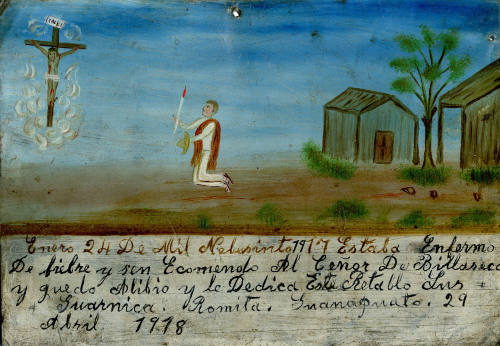 INRI
Enero 24 De Mil Nelusinto 1917 Estaba Enfermo
De fiebre y sen Ecomendo Al Ceñor De Billaseca
y quedo Alibio y le Dedica Este Retablo Lus
Guarnica. Romita. Guanajuato. 29
Abril 1918